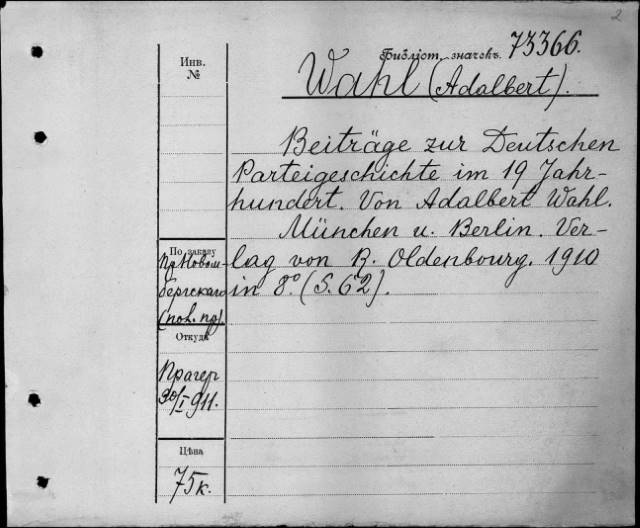 2
Библіот. значекъ 73366.
Инв.
№
Wahl (Adalbert).
Beiträge zur Deutschen
Parteigeschichte im 19 Jahr-
hundert. Von Adalbert Wahl.
München u. Berlin. Ver-
lag von R. Oldenbourg. 1910
in 8º. (S. 62).
По заказу
бергскаго
Откуда
Прагер
30/I 911.
Цѣна
75 к.